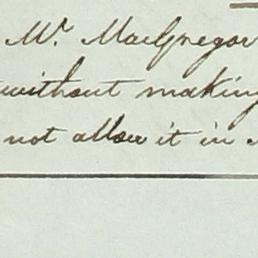 Mr. MacGregor
without making
not allow it in